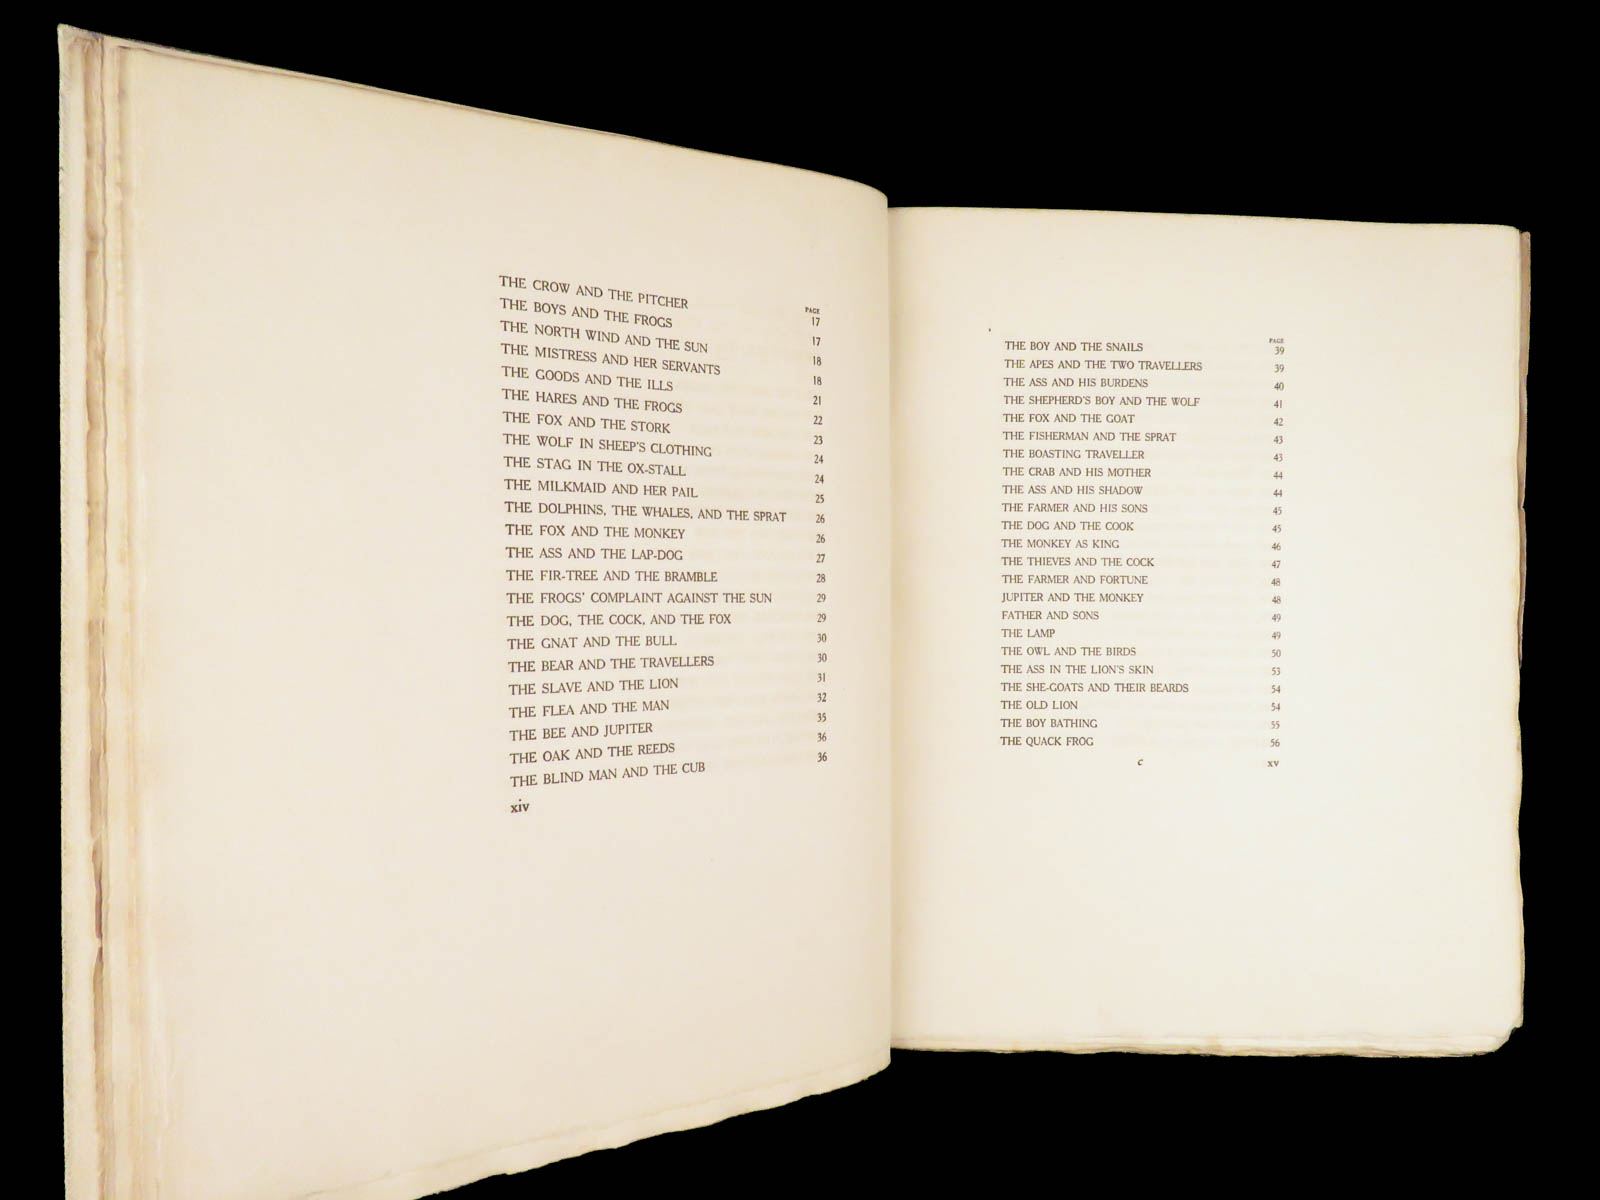 PAGE
THE CROW AND THE PITCHER 17
THE BOYS AND THE FROGS 17
THE NORTH WIND AND THE SUN 18
THE MISTRESS AND HER SERVANTS 18
THE GOODS AND THE ILLS 21
THE HARES AND THE FROGS 22
THE FOX AND THE STORK 23
THE WOLF IN SHEEP'S CLOTHING 24
THE STAG IN THE OX-STALL 24
THE MILKMAID AND HER PAIL 25
THE DOLPHINS, THE WHALES, AND THE SPRAT 26
THE FOX AND THE MONKEY 26
THE ASS AND THE LAP-DOG 27
THE FIR-TREE AND THE BRAMBLE 28
THE FROGS' COMPLAINT AGAINST THE SUN 29
THE DOG, THE COCK, AND THE FOX 29
THE GNAT AND THE BULL 30
THE BEAR AND THE TRAVELLERS 30
THE SLAVE AND THE LION 31
THE FLEA AND THE MAN 32
THE BEE AND JUPITER 35
THE OAK AND THE REEDS 36
THE BLIND MAN AND THE CUB 36
xiv
PAGE
THE BOY AND THE SNAILS 39
THE APES AND THE TWO TRAVELLERS 39
THE ASS AND HIS BURDENS 40
THE SHEPHERD'S BOY AND THE WOLF 41
THE FOX AND THE GOAT 42
THE FISHERMAN AND THE SPRAT 43
THE BOASTING TRAVELLER 43
THE CRAB AND HIS MOTHER 44
THE ASS AND HIS SHADOW 44
THE FARMER AND HIS SONS 45
THE DOG AND THE COOK 45
THE MONKEY AS KING 46
THE THIEVES AND THE COCK 47
THE FARMER AND FORTUNE 48
JUPITER AND THE MONKEY 48
FATHER AND SONS 49
THE LAMP 49
THE OWL AND THE BIRDS 50
THE ASS IN THE LION'S SKIN 53
THE SHE-GOATS AND THEIR BEARDS 54
THE OLD LION 54
THE BOY BATHING 55
THE QUACK FROG 56
c xv